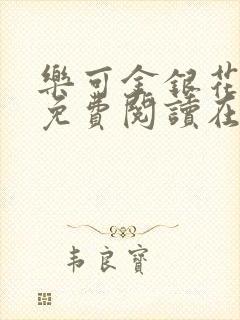 樂可金銀花
免費閱讀在
韦良寶